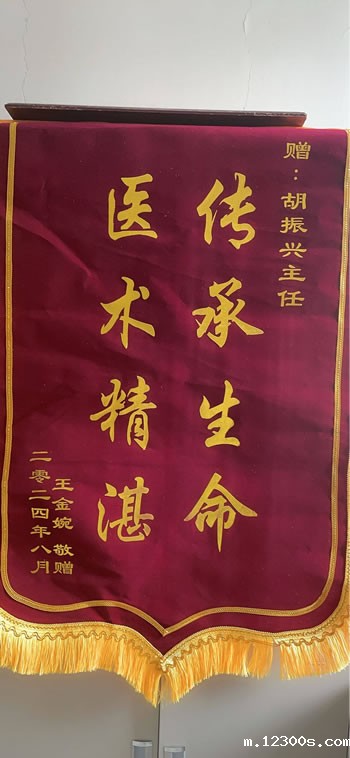 赠：胡振兴主任
传承生命
医术精湛
王金婉 敬赠
二零二四年八月
m.12300s.com